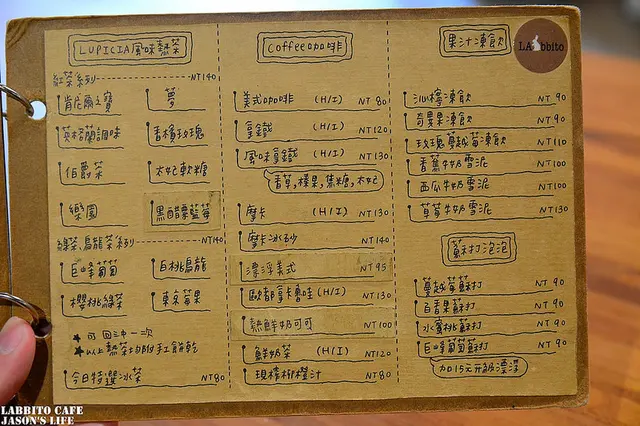 LUPICIA風味熱茶
紅茶系列 NT140
肯尼爾之寶 夢
英格蘭調味 香檳玫瑰
伯爵茶 太妃軟糖
樂園 黑醋栗藍莓
綠茶、烏龍茶系列 NT140
巨峰葡萄 白桃烏龍
櫻桃綠茶 東京蘋果
★可回沖一次
★以上熱茶均附手工餅乾
今日特選冰茶 NT80
Coffee咖啡
美式咖啡 (H/I) NT 80
拿鐵 (H/I) NT120
風味拿鐵 (H/I) NT130
香草,榛果,焦糖,太妃
摩卡 (H/I) NT130
摩卡冰砂 NT140
漂浮美式 NT95
歐蕾拿卡 (H/I) NT130
熱鮮奶可可 NT100
鮮奶茶 (H/I) NT120
現榨柳橙汁 NT80
果汁凍飲
LAbbito
沁檸凍飲 NT 90
奇異果凍飲 NT 90
玫瑰蔓越莓凍飲 NT110
香蕉牛奶雪泥 NT100
西瓜牛奶雪泥 NT100
草莓牛奶雪泥 NT130
蘇打泡泡
蔓越莓蘇打 NT 90
百香果蘇打 NT 90
水蜜桃蘇打 NT 90
巨峰葡萄蘇打 NT 90
加15元升級漂浮
LABBITO CAFE
JASON'S LIFE